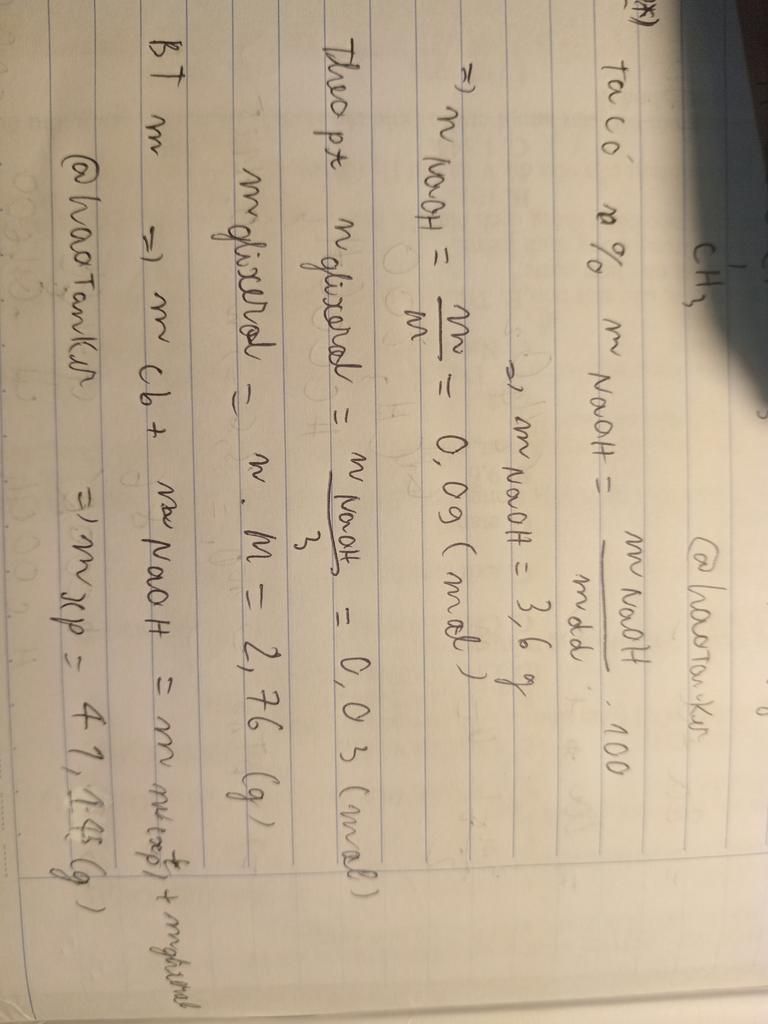 CH₃ @haoTanKm
Ta có % m NaOH = m NaOH / mdd . 100
=> m NaOH = 3,6 g
=> n NaOH = m / M = 0,09 (mol)
Theo pt n glixerol = n NaOH / 3 = 0,03 (mol)
m glixerol = n . M = 2,76 (g)
BT m => m cb + m NaOH = m + m glixerol
@haoTanKm => m xp = 41,145 (g)